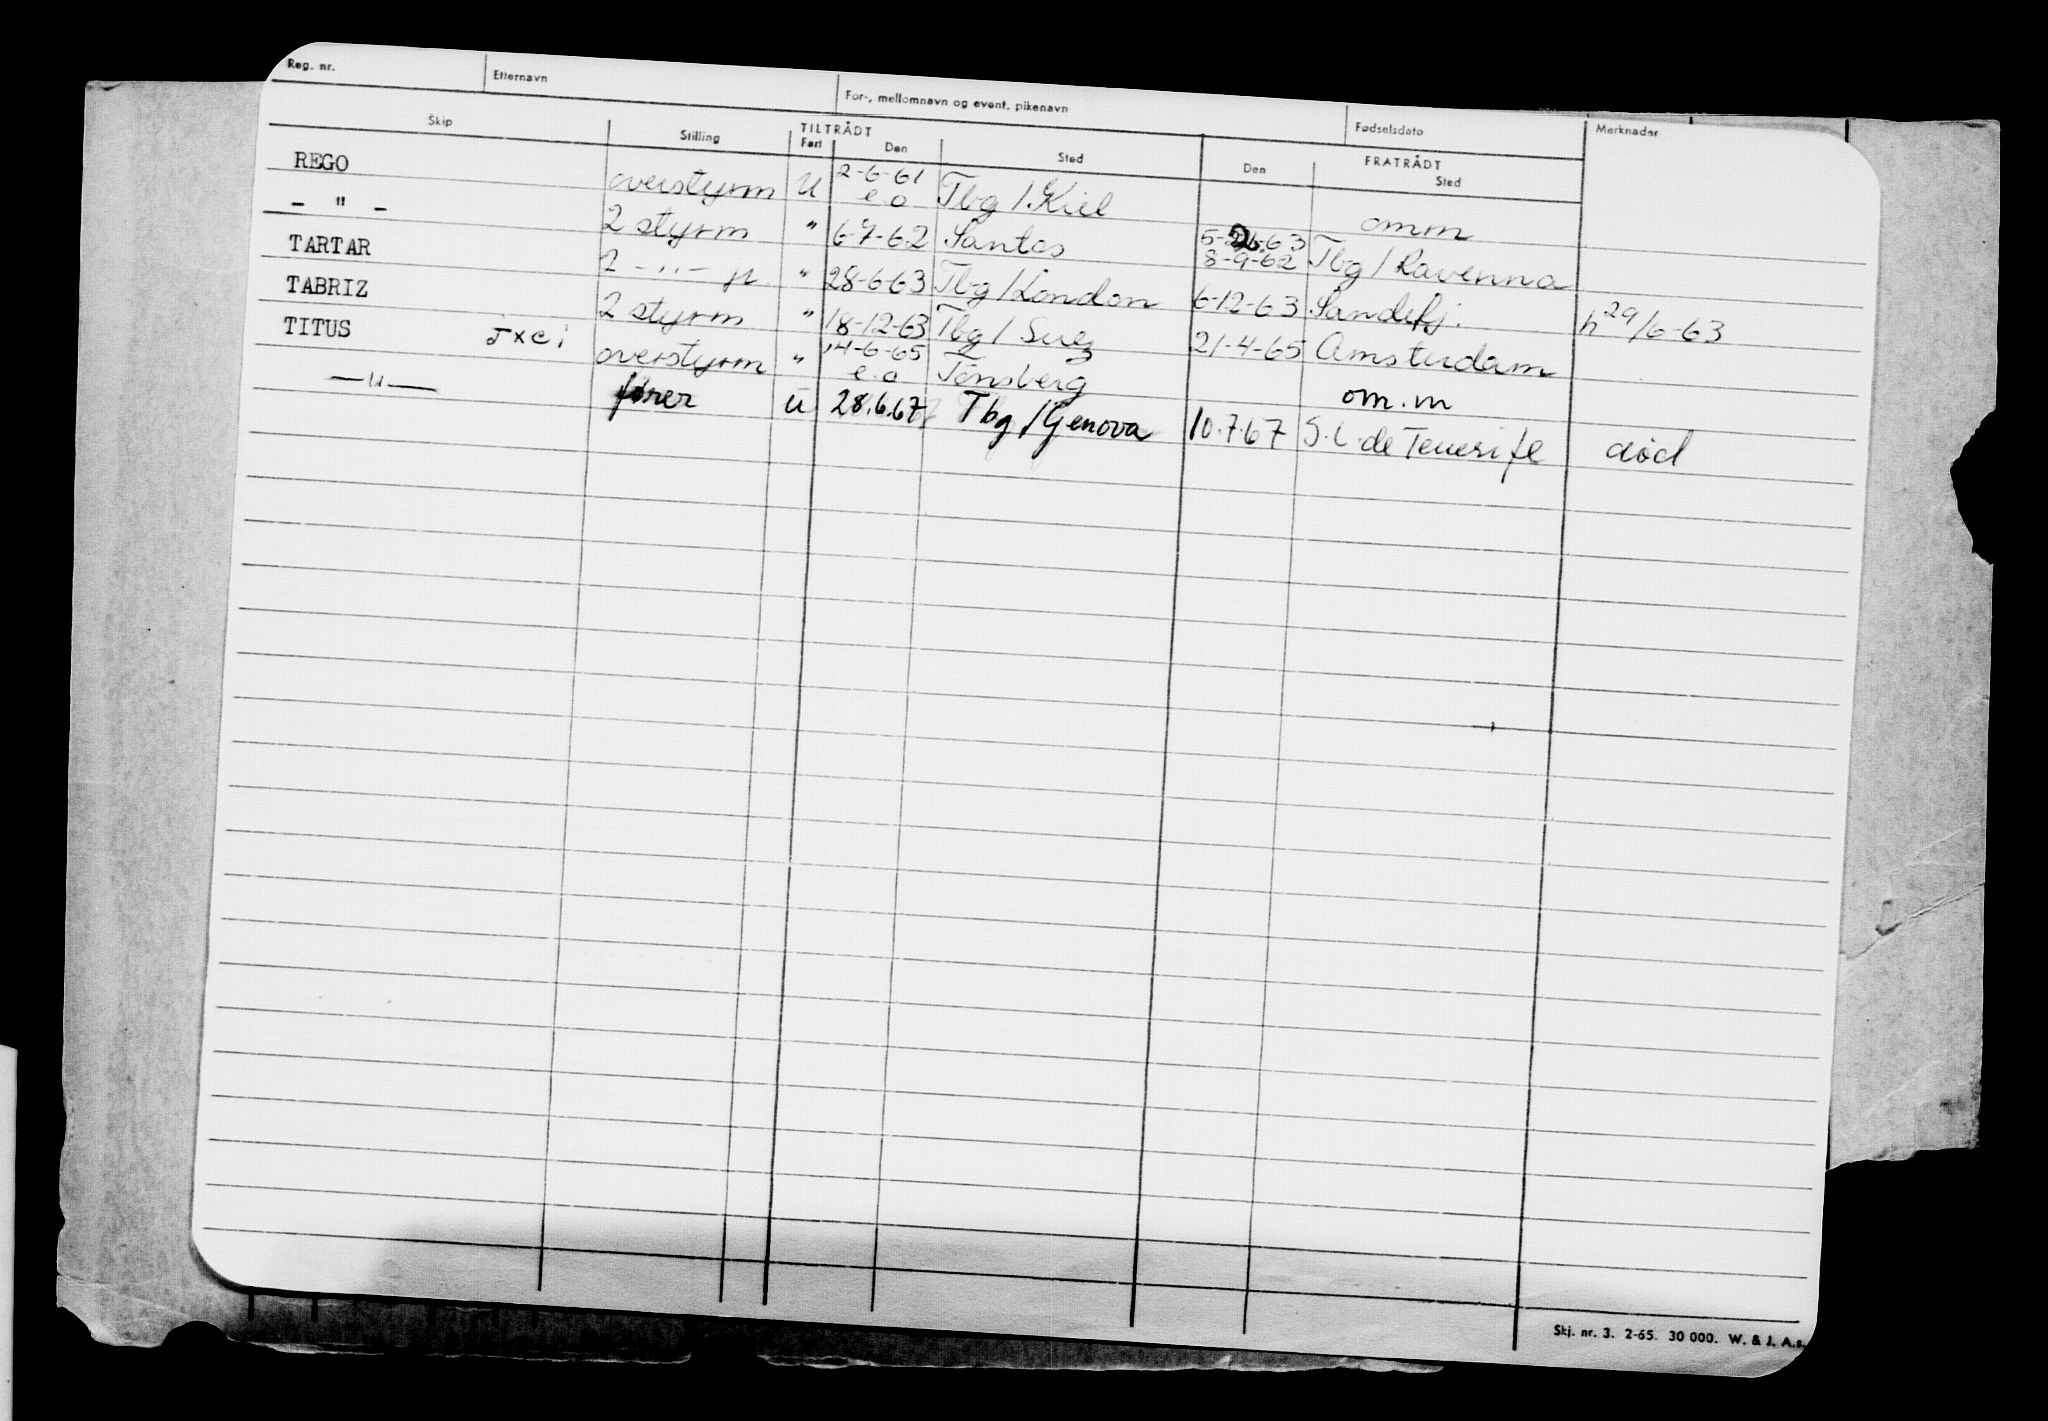 Reg. nr. Etternavn For-, mellomnavn og event. pikenavn Fødselsdato Merknader
Skip Stilling TILTRÅDT Fart Den Sted FRATRÅDT Den Sted
REGO overstyrm U 2-6-61 e.o Tbg / Kiel omm
- " - 2 styrm " 6-7-62 Santos 5-2-63 8-9-62 Tbg / Ravenna
TARTAR 2 - " - jr. " 28-6-63 Tbg / London 6-12-63 Sandefj. h 29/6-63
TABRIZ 2 styrm " 18-12-63 Tbg / Suez 21-4-65 Amsterdam
TITUS JXCI overstyrm " 14-6-65 e.o Tønsberg om.m
— " — fører u 28.6.67 Tbg / Genova 10.7.67 S.C. de Tenerife død
Skj. nr. 3. 2-65. 30 000. W. & J. A.s.